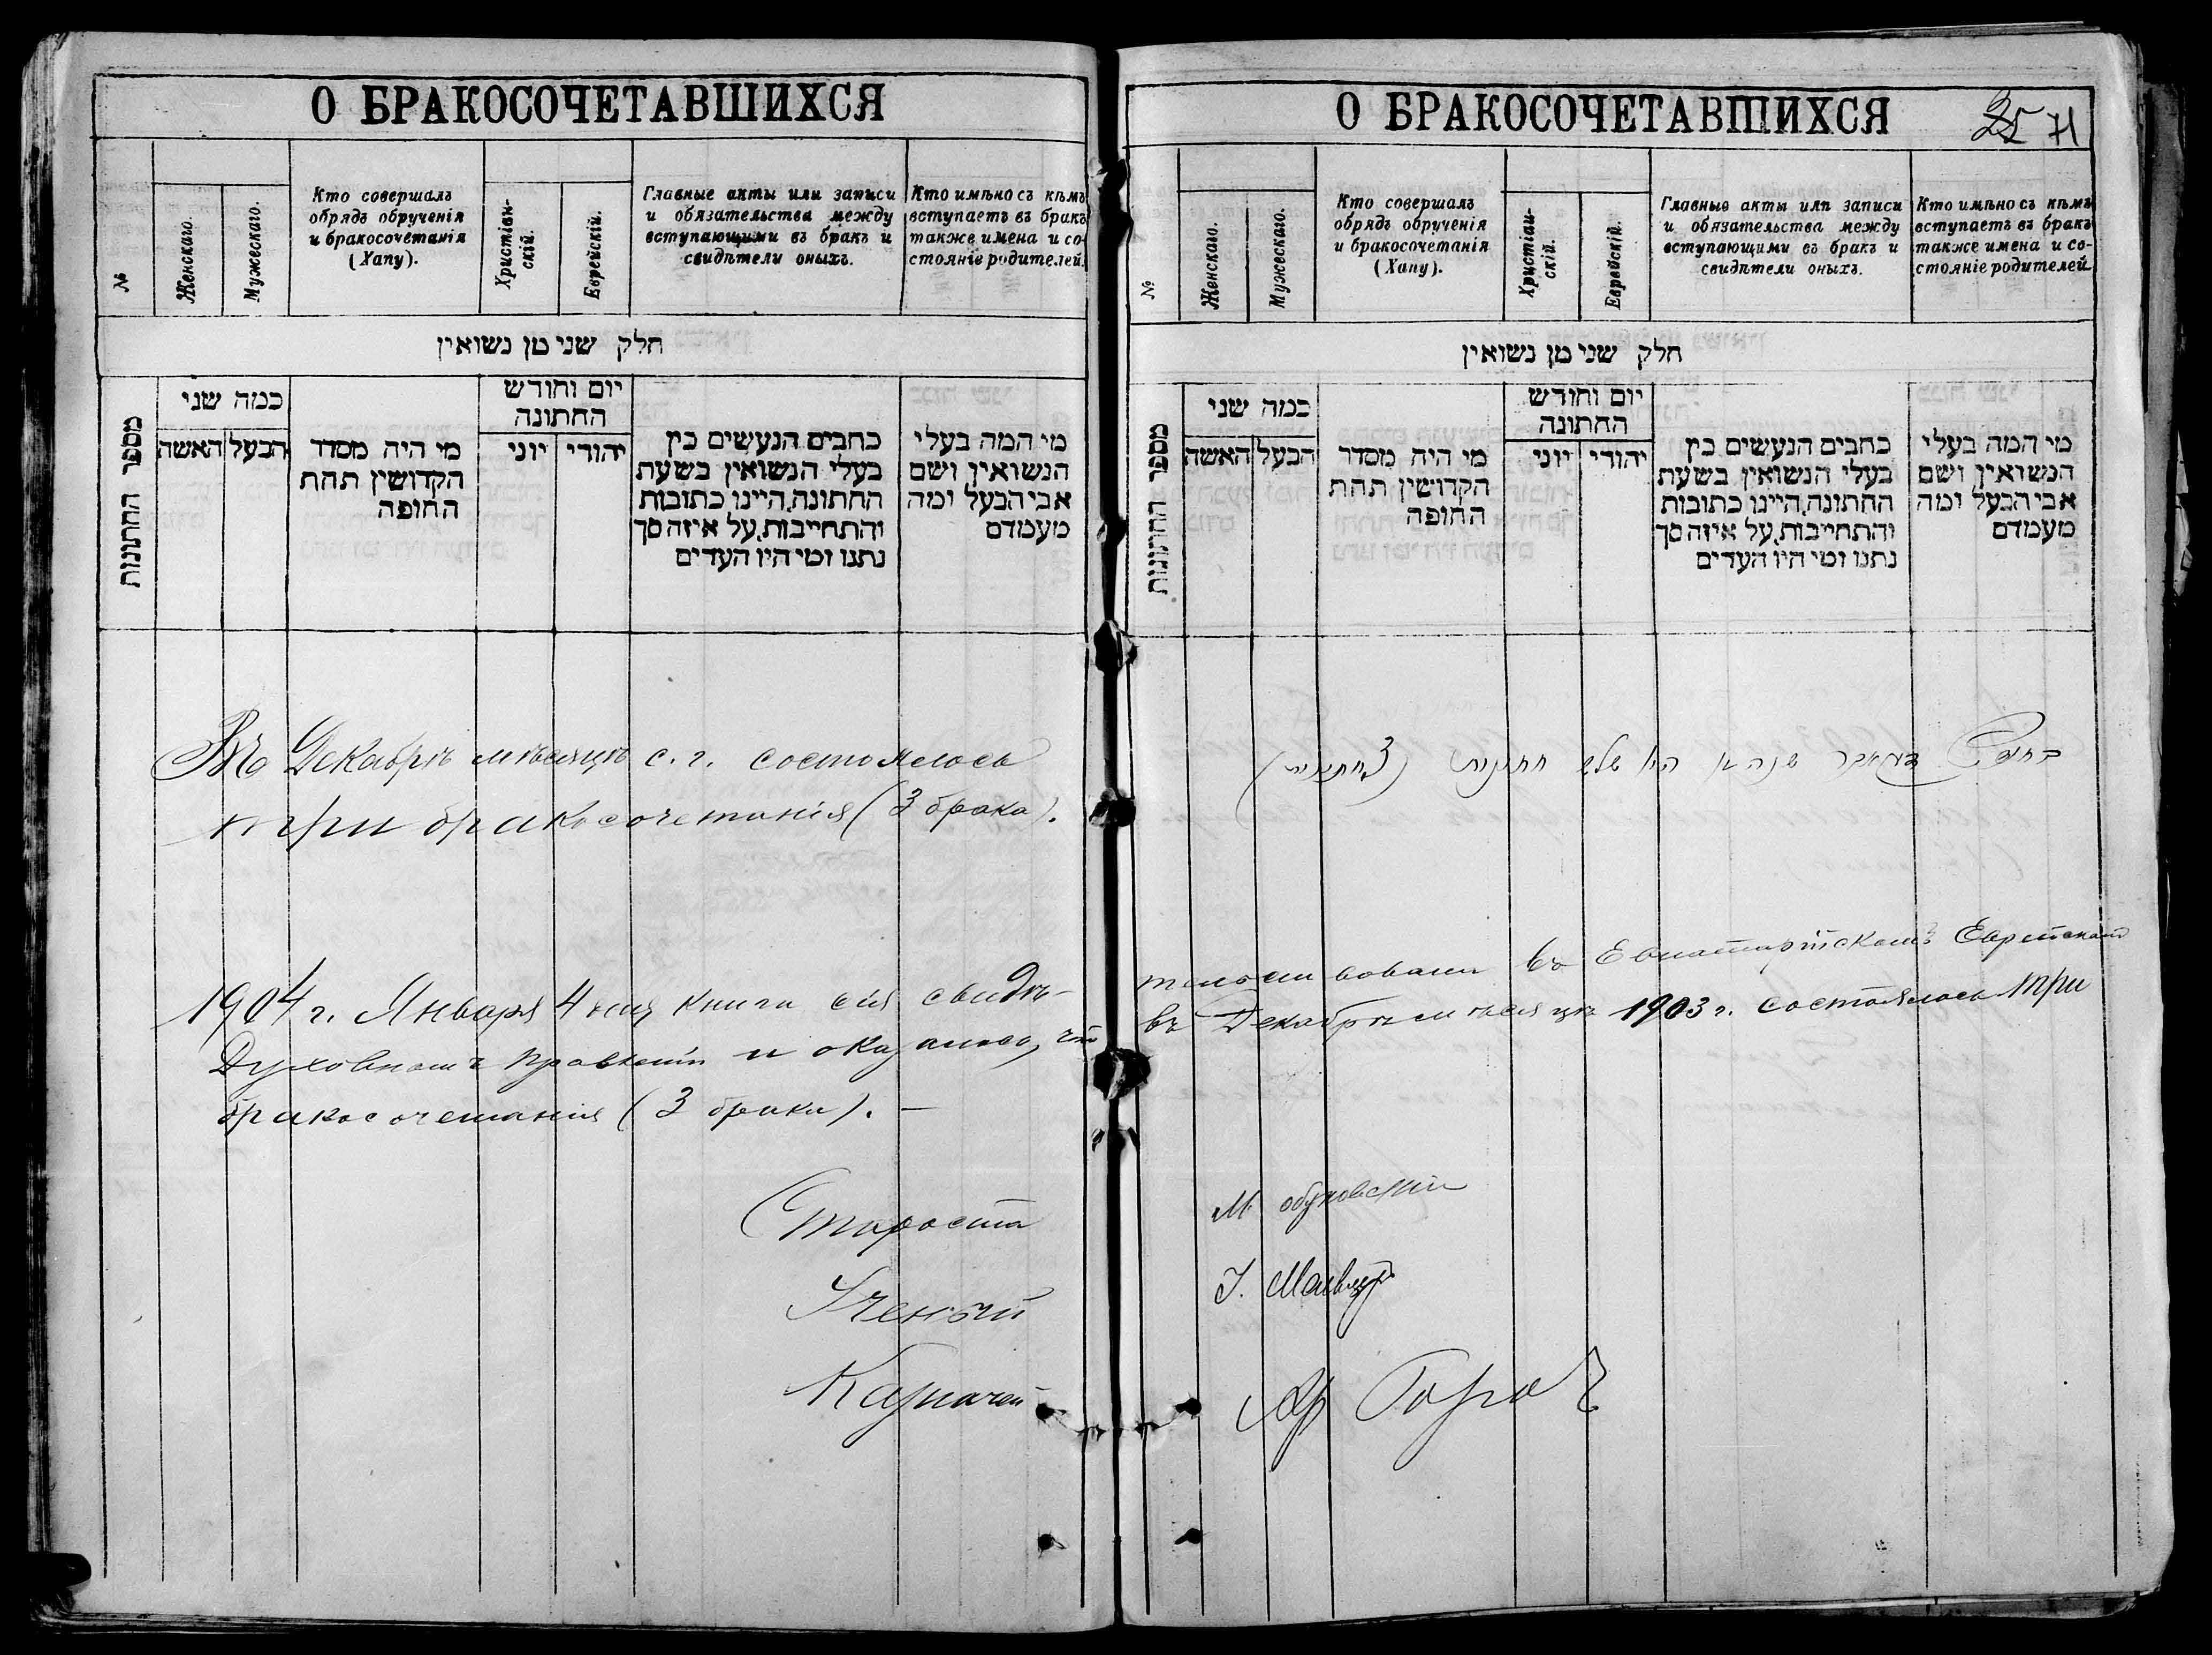 О БРАКОСОЧЕТАВШИХСЯ
№
Женскаго.
Мужескаго.
Кто совершалъ
обрядъ обрученія
и бракосочетанія
(Хапу).
Христіан-
скій.
Еврейскій.
Главные акты или записи
и обязательства между
вступающими въ бракъ и
свидѣтели оныхъ.
Кто имѣно съ кѣмъ
вступаетъ въ бракъ
также имена и со-
стояніе родителей.
חלק שני מן נשואין
מספר החתונות
כמה שני
האשה
הבעל
מי היה מסדר
הקדושין תחת
החופה
יום וחודש
החתונה
יוני
יהודי
כתבים הנעשים בין
בעלי הנשואין בשעת
החתונה. היינו כתובות
והתחייבות. על איזה סך
נתנו ומי היו העדים
מי המה בעלי
הנשואין ושם
אבי הבעל ומה
מעמדם
Въ Декабрѣ мѣсяцѣ с. г. состоялось
три бракосочетанія (3 брака).
1904 г. Января 4 дня книги сія свидѣ-
Духовномъ Правленіи и оказалось, что
бракосочетанія (3 брака). —
Староста
Ученый
Казначей
О БРАКОСОЧЕТАВШИХСЯ
25 71
№
Женскаго.
Мужескаго.
Кто совершалъ
обрядъ обрученія
и бракосочетанія
(Хапу).
Христіан-
скій.
Еврейскій.
Главные акты или записи
и обязательства между
вступающими въ бракъ и
свидѣтели оныхъ.
Кто имѣно съ кѣмъ
вступаетъ въ бракъ
также имена и со-
стояніе родителей
חלק שני מן נשואין
מספר החתונות
כמה שני
האשה
הבעל
מי היה מסדר
הקדושין תחת
החופה
יום וחודש
החתונה
יוני
יהודי
כתבים הנעשים בין
בעלי הנשואין בשעת
החתונה. היינו כתובות
והתחייבות. על איזה סך
נתנו ומי היו העדים
מי המה בעלי
הנשואין ושם
אבי הבעל ומה
מעמדם
בחודש דעקאבר שנה זו היו שלש חתונות (3 חתונות)
тельствованы въ Евпаторійскомъ Еврейскомъ
въ Декабрѣ мѣсяцѣ 1903 г. состоялось три
М. Обуховскій